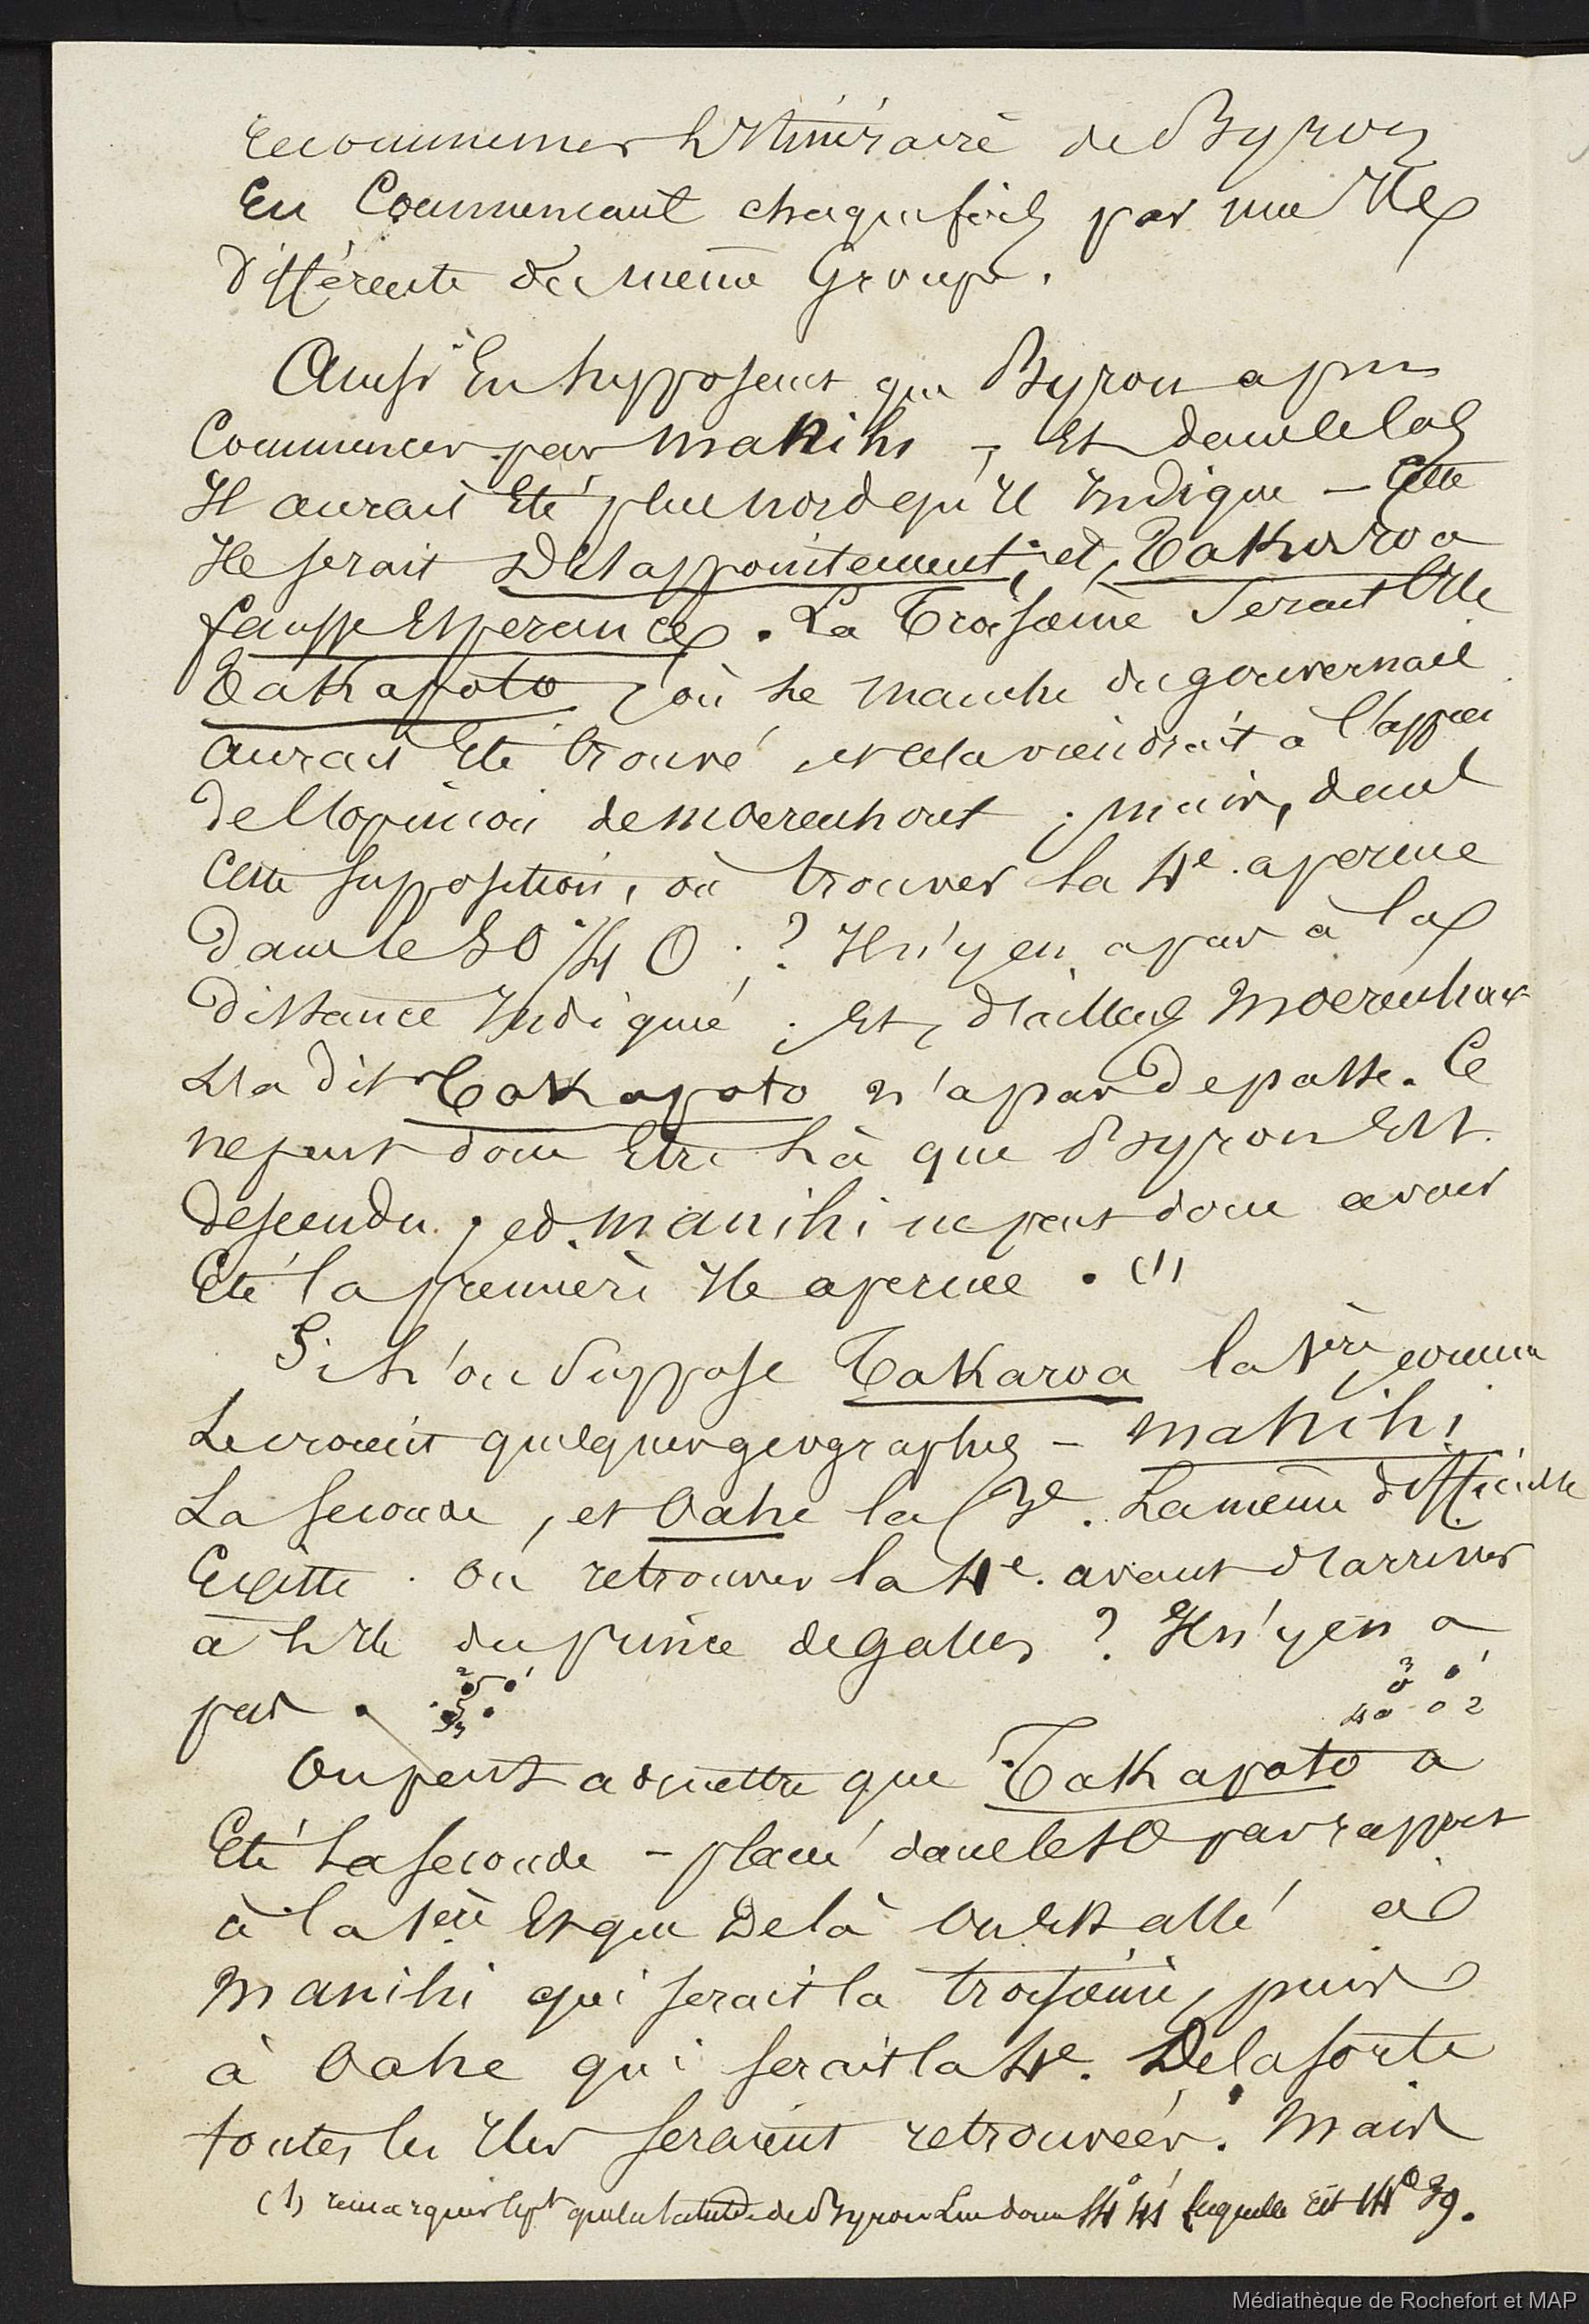 recommencer l'Itinéraire de Byron
En Commencant chaque fois par une Ile
différente du même Groupe.
Ainsi En supposant que Byron a pu
Commencer par Manihi - Et dans ce cas
Il aurait Eté plus nord qu'il Indique - Cette
Ile serait Désappointement, et, Takaroa
fausse Espérance. La Troisième Serait l'Ile
Takapoto, où le manche du gouvernail
aurait Eté trouvé, et cela viendrait à l'appui
de l'opinion de Moerenhout ; mais, dans
cette supposition, où trouver la 4e. aperçue
dans le SO 1/4 O ; ? Il n'y en a pas à la
distance Indiquée ; Et, d'ailleurs Moerenhout
L'a dit Takapoto n'a pas de passe. Ce
ne peut donc Etre là que Byron Est
descendu ; et Manihi ne peut donc avoir
Eté la première Ile aperçue. (1)
Si l'on Suppose Takaroa la 1ère, comme
Le croient quelques géographes - Manihi
La seconde, et Oahe la 3e. La même difficulté
Existe. Où retrouver la 4e. avant d'arriver
à l'Ile du prince de galles ? Il n'y en a
pas.
On peut admettre que Takapoto a
Eté La seconde - placée dans le SO par rapport
à la 1ère Et que De là On Est allé à
Manihi qui serait la troisième, puis
à Oahe qui serait la 4e. De la sorte
toutes les Iles seraient retrouvées. Mais
(1) remarquer que la latitude de Byron Lui donne 14° 41' laquelle Est 14° 39.
Médiathèque de Rochefort et MAP